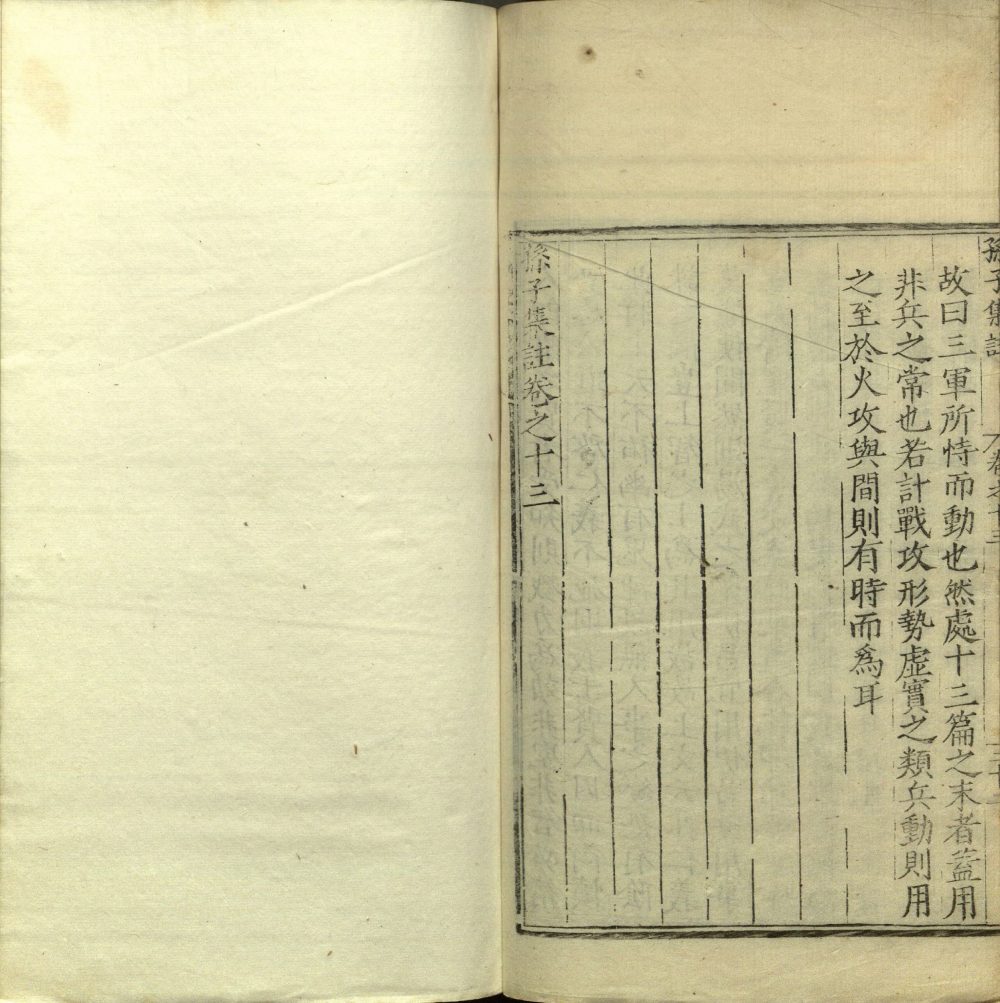 孫子集註 卷之十三
故曰三軍所恃而動也然處十三篇之末者蓋用
非兵之常也若計戰攻形勢虛實之類兵動則用
之至於火攻與間則有時而為耳
孫子集註卷之十三